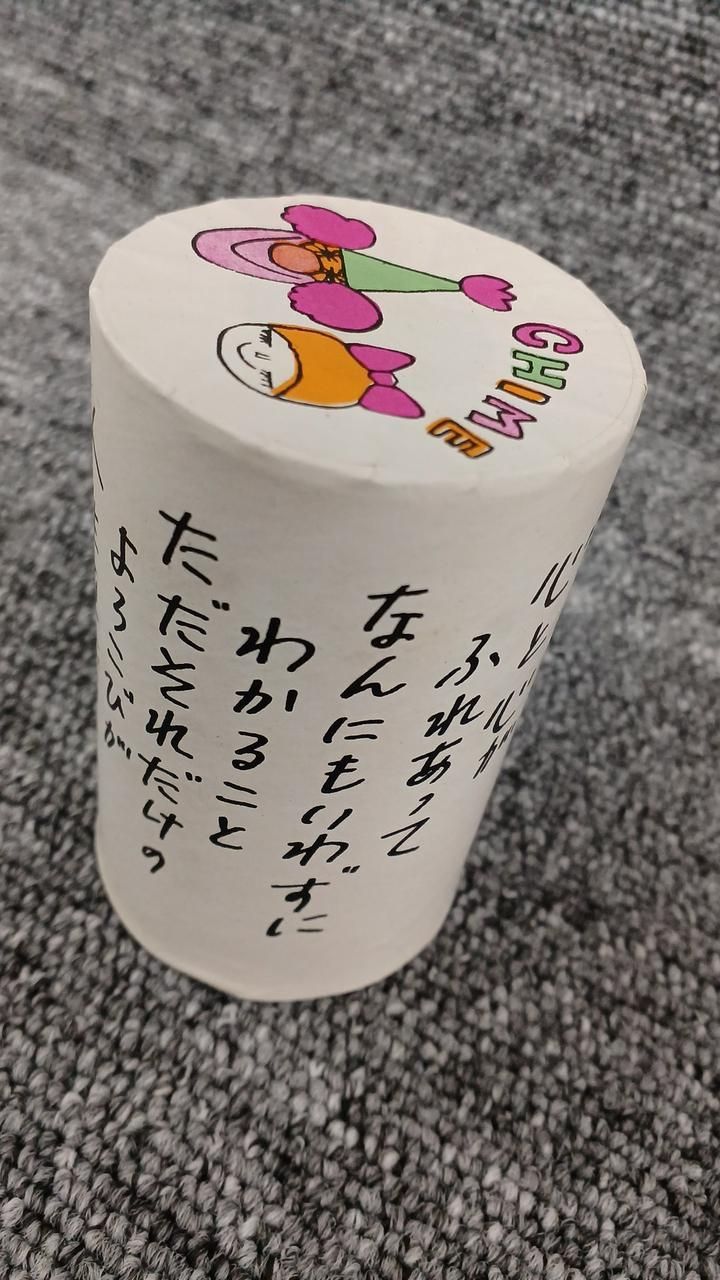 CHIME
心と心が
ふれあって
なんにもいわずに
わかること
ただそれだけの
よろこびが